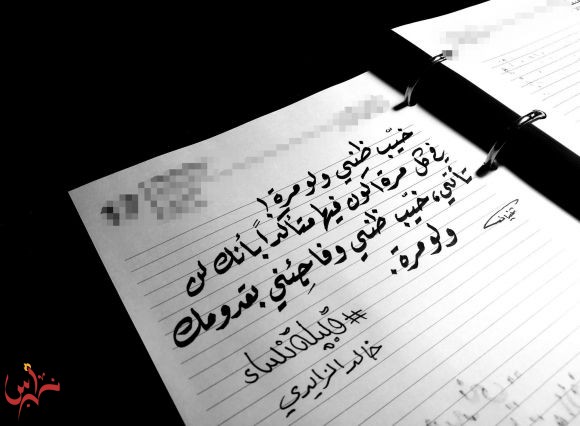 خيّب ظني ولو مرة!
في كل مرة اكون فيها متأكداً بأنك لن
تأتي، خيّب ظني وفاجئني بقدومك
ولو مرة.
#قبيلة_نساء
خالد الزايدي
نبراس